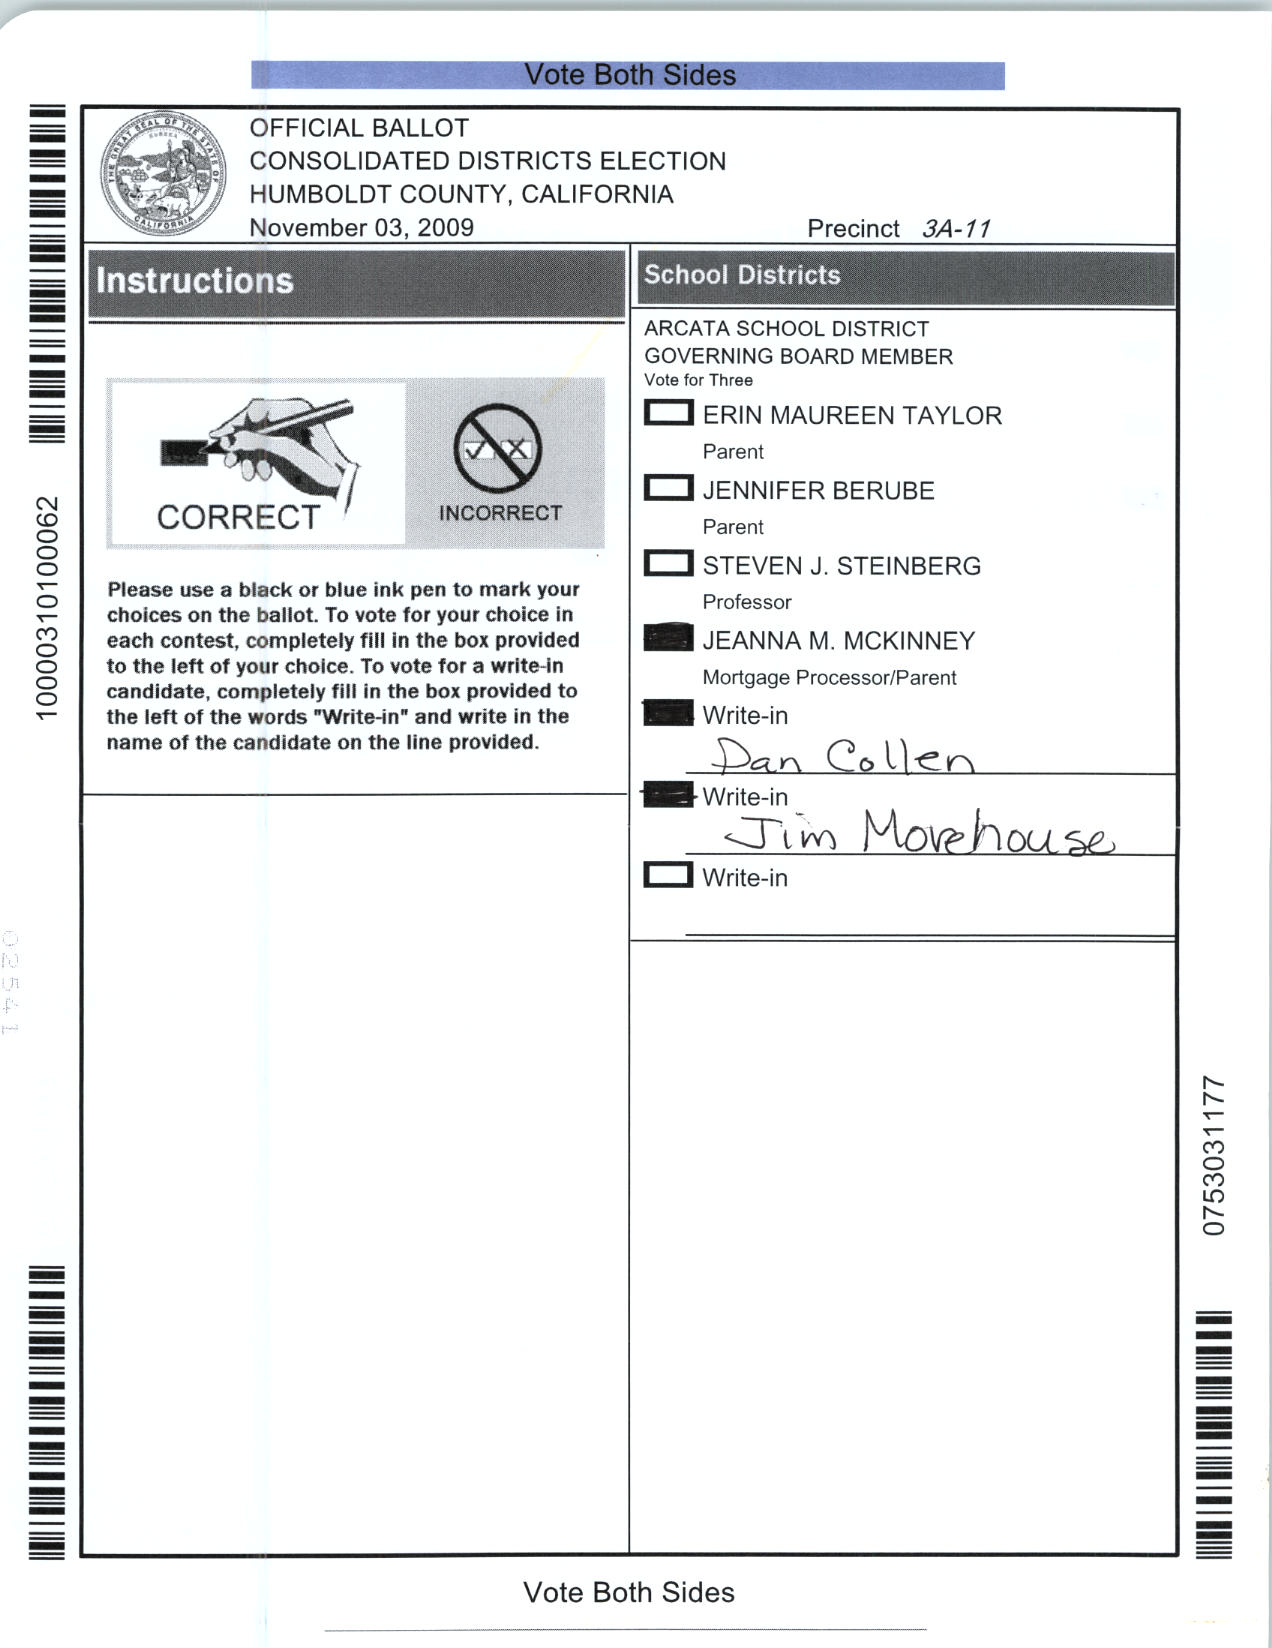 Vote Both Sides
OFFICIAL BALLOT
CONSOLIDATED DISTRICTS ELECTION
HUMBOLDT COUNTY, CALIFORNIA
November 03, 2009
Precinct 3A-11
THE GREAT SEAL OF THE STATE OF CALIFORNIA
EUREKA
Instructions
CORRECT
INCORRECT
Please use a black or blue ink pen to mark your
choices on the ballot. To vote for your choice in
each contest, completely fill in the box provided
to the left of your choice. To vote for a write-in
candidate, completely fill in the box provided to
the left of the words "Write-in" and write in the
name of the candidate on the line provided.
School Districts
ARCATA SCHOOL DISTRICT
GOVERNING BOARD MEMBER
Vote for Three
ERIN MAUREEN TAYLOR
Parent
JENNIFER BERUBE
Parent
STEVEN J. STEINBERG
Professor
JEANNA M. MCKINNEY
Mortgage Processor/Parent
Write-in
Dan Collen
Write-in
Jim Morehouse
Write-in
10000310100062
02541
0753031177
Vote Both Sides